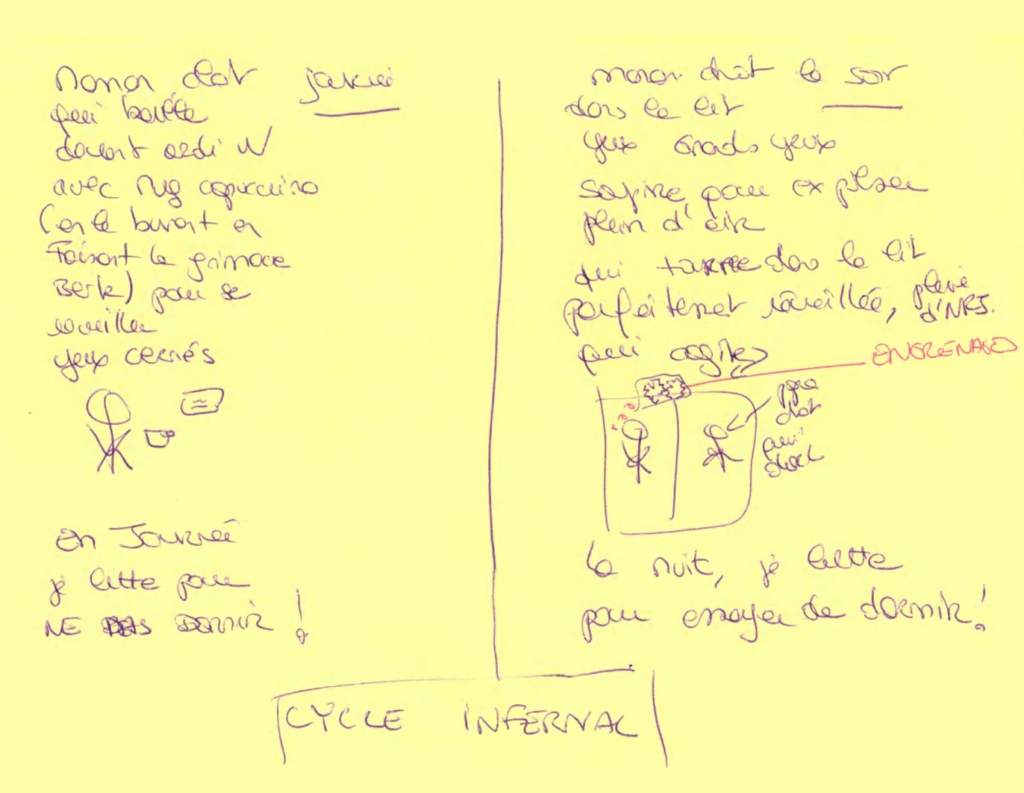 Maman chat journée
qui baille
devant ordi W
avec Mug capuccino
(en le buvant en
Faisant la grimace
Berk) pour se
réveiller
yeux cernés
en Journée
je lutte pour
NE PAS DORMIR !
maman chat le soir
dans le lit
yeux Grands yeux
soupire pour ex
plein d'air
qui tourne dans le lit
parfaitement réveillée, pleine
d'NRJ.
qui cogite
ENGRENAGES
papa
chat
qui
dort
la nuit, je lutte
pour essayer de dormir !
CYCLE INFERNAL